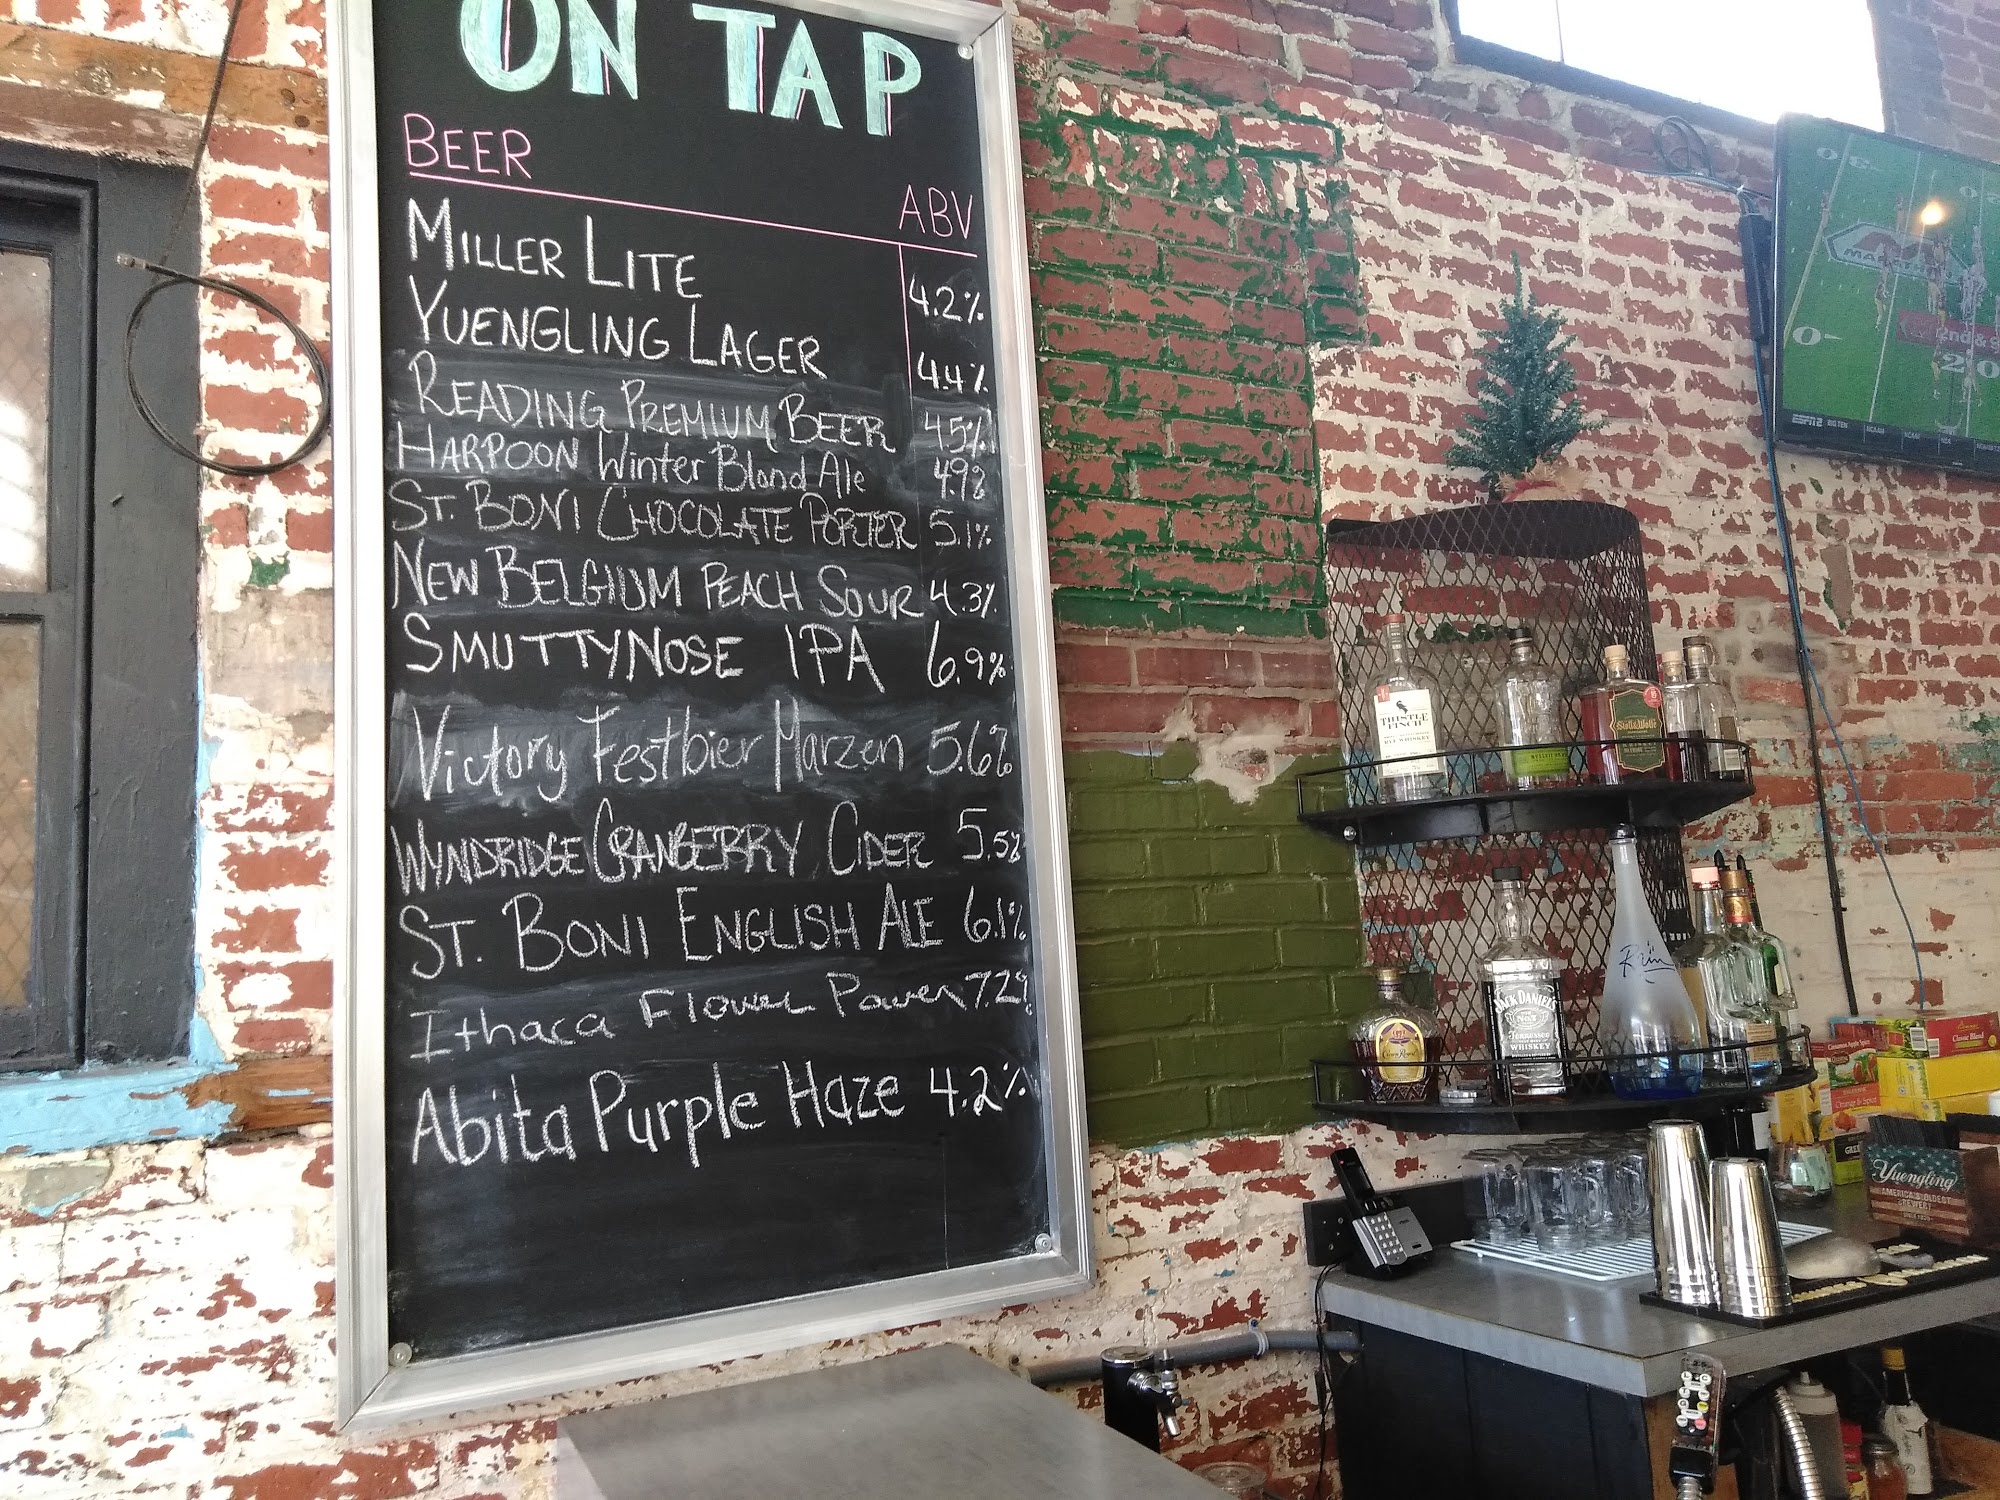 ON TAP
BEER
ABV
MILLER LITE 4.2%
YUENGLING LAGER 4.4%
READING PREMIUM BEER 4.5%
HARPOON Winter Blond Ale 4.9%
ST. BONI CHOCOLATE PORTER 5.1%
NEW BELGIUM PEACH SOUR 4.3%
SMUTTYNOSE IPA 6.9%
Victory Festbier Marzen 5.6%
WYNDRIDGE CRANBERRY CIDER 5.5%
ST. BONI ENGLISH ALE 6.1%
Ithaca Flower Power 7.2%
Abita Purple Haze 4.2%
2nd & 9
20
ESPN2
BIG TEN
NCAAM
NBA
THISTLE
FINCH
RYE WHISKEY
Stoll & Wolfe
WHISKEY
Rain
JACK DANIEL'S
No.7
Tennessee
WHISKEY
Crown Royal
Cinnamon Apple Spice
Classic Blend
Orange & Spice
Yuengling
AMERICA'S OLDEST
BREWERY